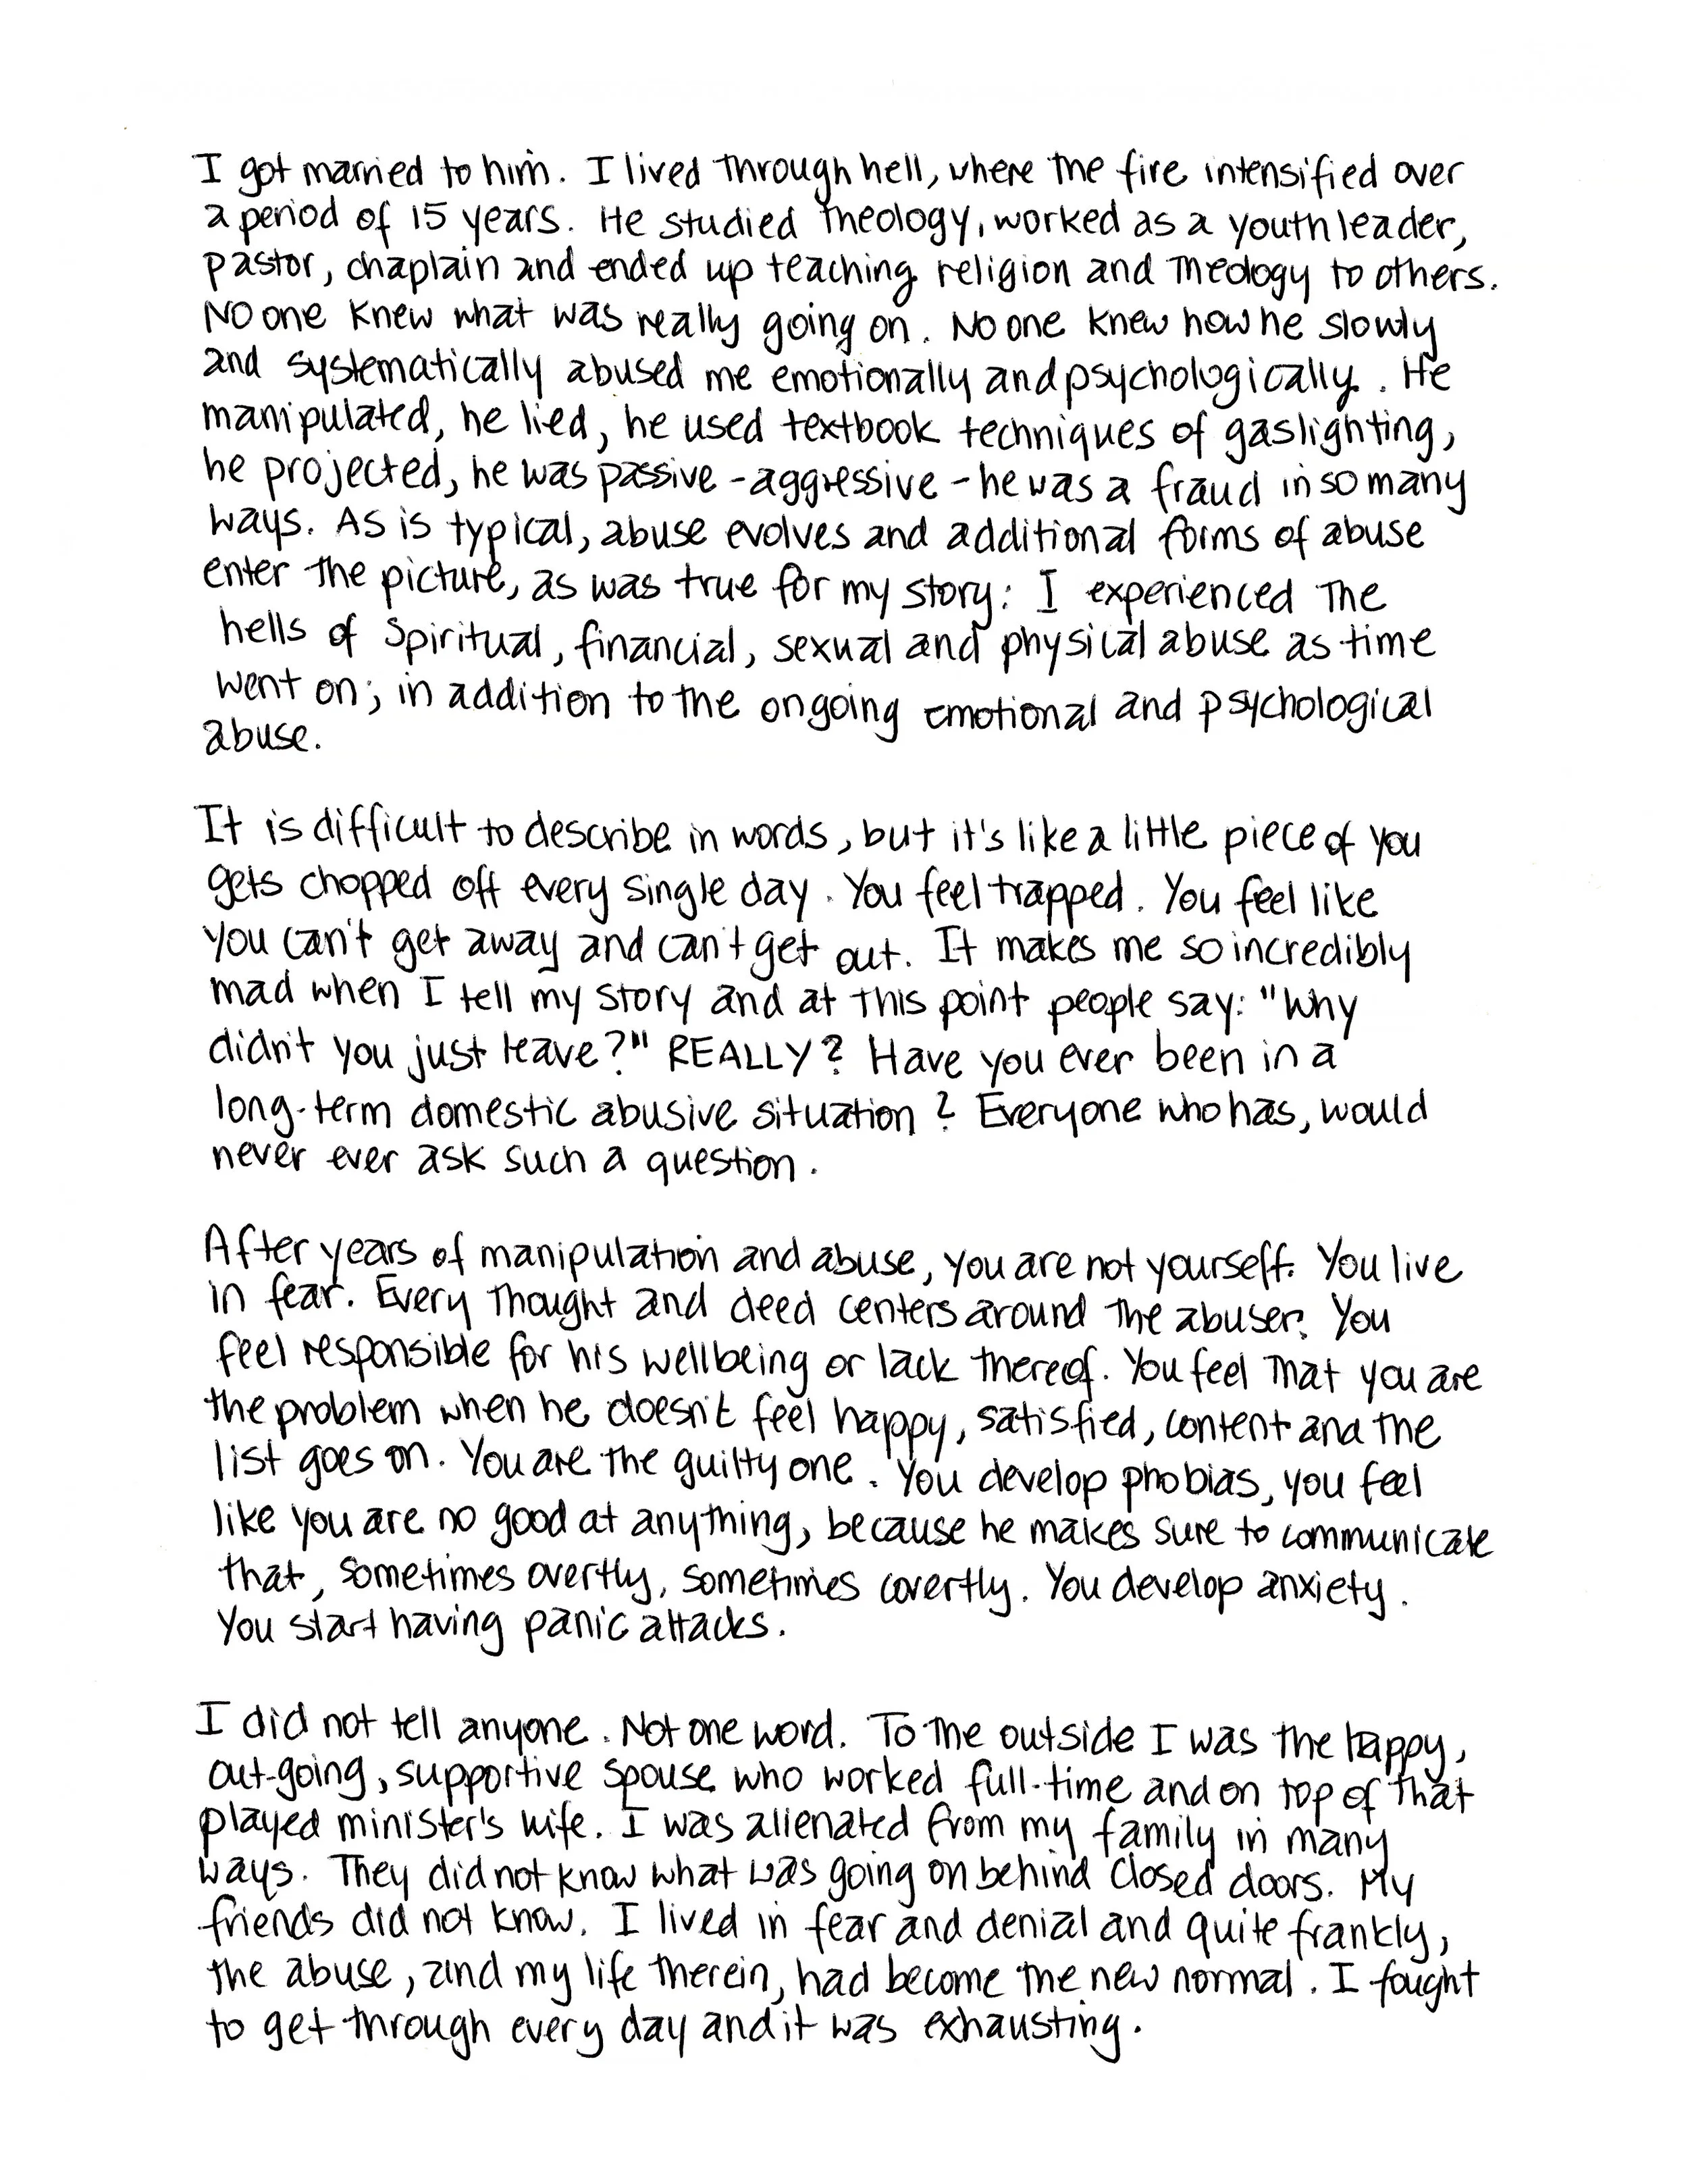 I got married to him. I lived through hell, where the fire intensified over
a period of 15 years. He studied theology, worked as a youth leader,
pastor, chaplain and ended up teaching religion and theology to others.
No one knew what was really going on. No one knew how he slowly
and systematically abused me emotionally and psychologically. He
manipulated, he lied, he used textbook techniques of gaslighting,
he projected, he was passive-aggressive - he was a fraud in so many
ways. As is typical, abuse evolves and additional forms of abuse
enter the picture, as was true for my story: I experienced the
hells of spiritual, financial, sexual and physical abuse as time
went on; in addition to the ongoing emotional and psychological
abuse.
It is difficult to describe in words, but it's like a little piece of you
gets chopped off every single day. You feel trapped. You feel like
you can't get away and can't get out. It makes me so incredibly
mad when I tell my story and at this point people say: "Why
didn't you just leave?" REALLY? Have you ever been in a
long-term domestic abusive situation? Everyone who has, would
never ever ask such a question.
After years of manipulation and abuse, you are not yourself. You live
in fear. Every thought and deed centers around the abuser. You
feel responsible for his wellbeing or lack thereof. You feel that you are
the problem when he doesn't feel happy, satisfied, content and the
list goes on. You are the guilty one. You develop phobias, you feel
like you are no good at anything, because he makes sure to communicate
that, sometimes overtly, sometimes covertly. You develop anxiety.
You start having panic attacks.
I did not tell anyone. Not one word. To the outside I was the happy,
out-going, supportive spouse who worked full-time and on top of that
played minister's wife. I was alienated from my family in many
ways. They did not know what was going on behind closed doors. My
friends did not know. I lived in fear and denial and quite frankly,
the abuse, and my life therein, had become the new normal. I fought
to get through every day and it was exhausting.